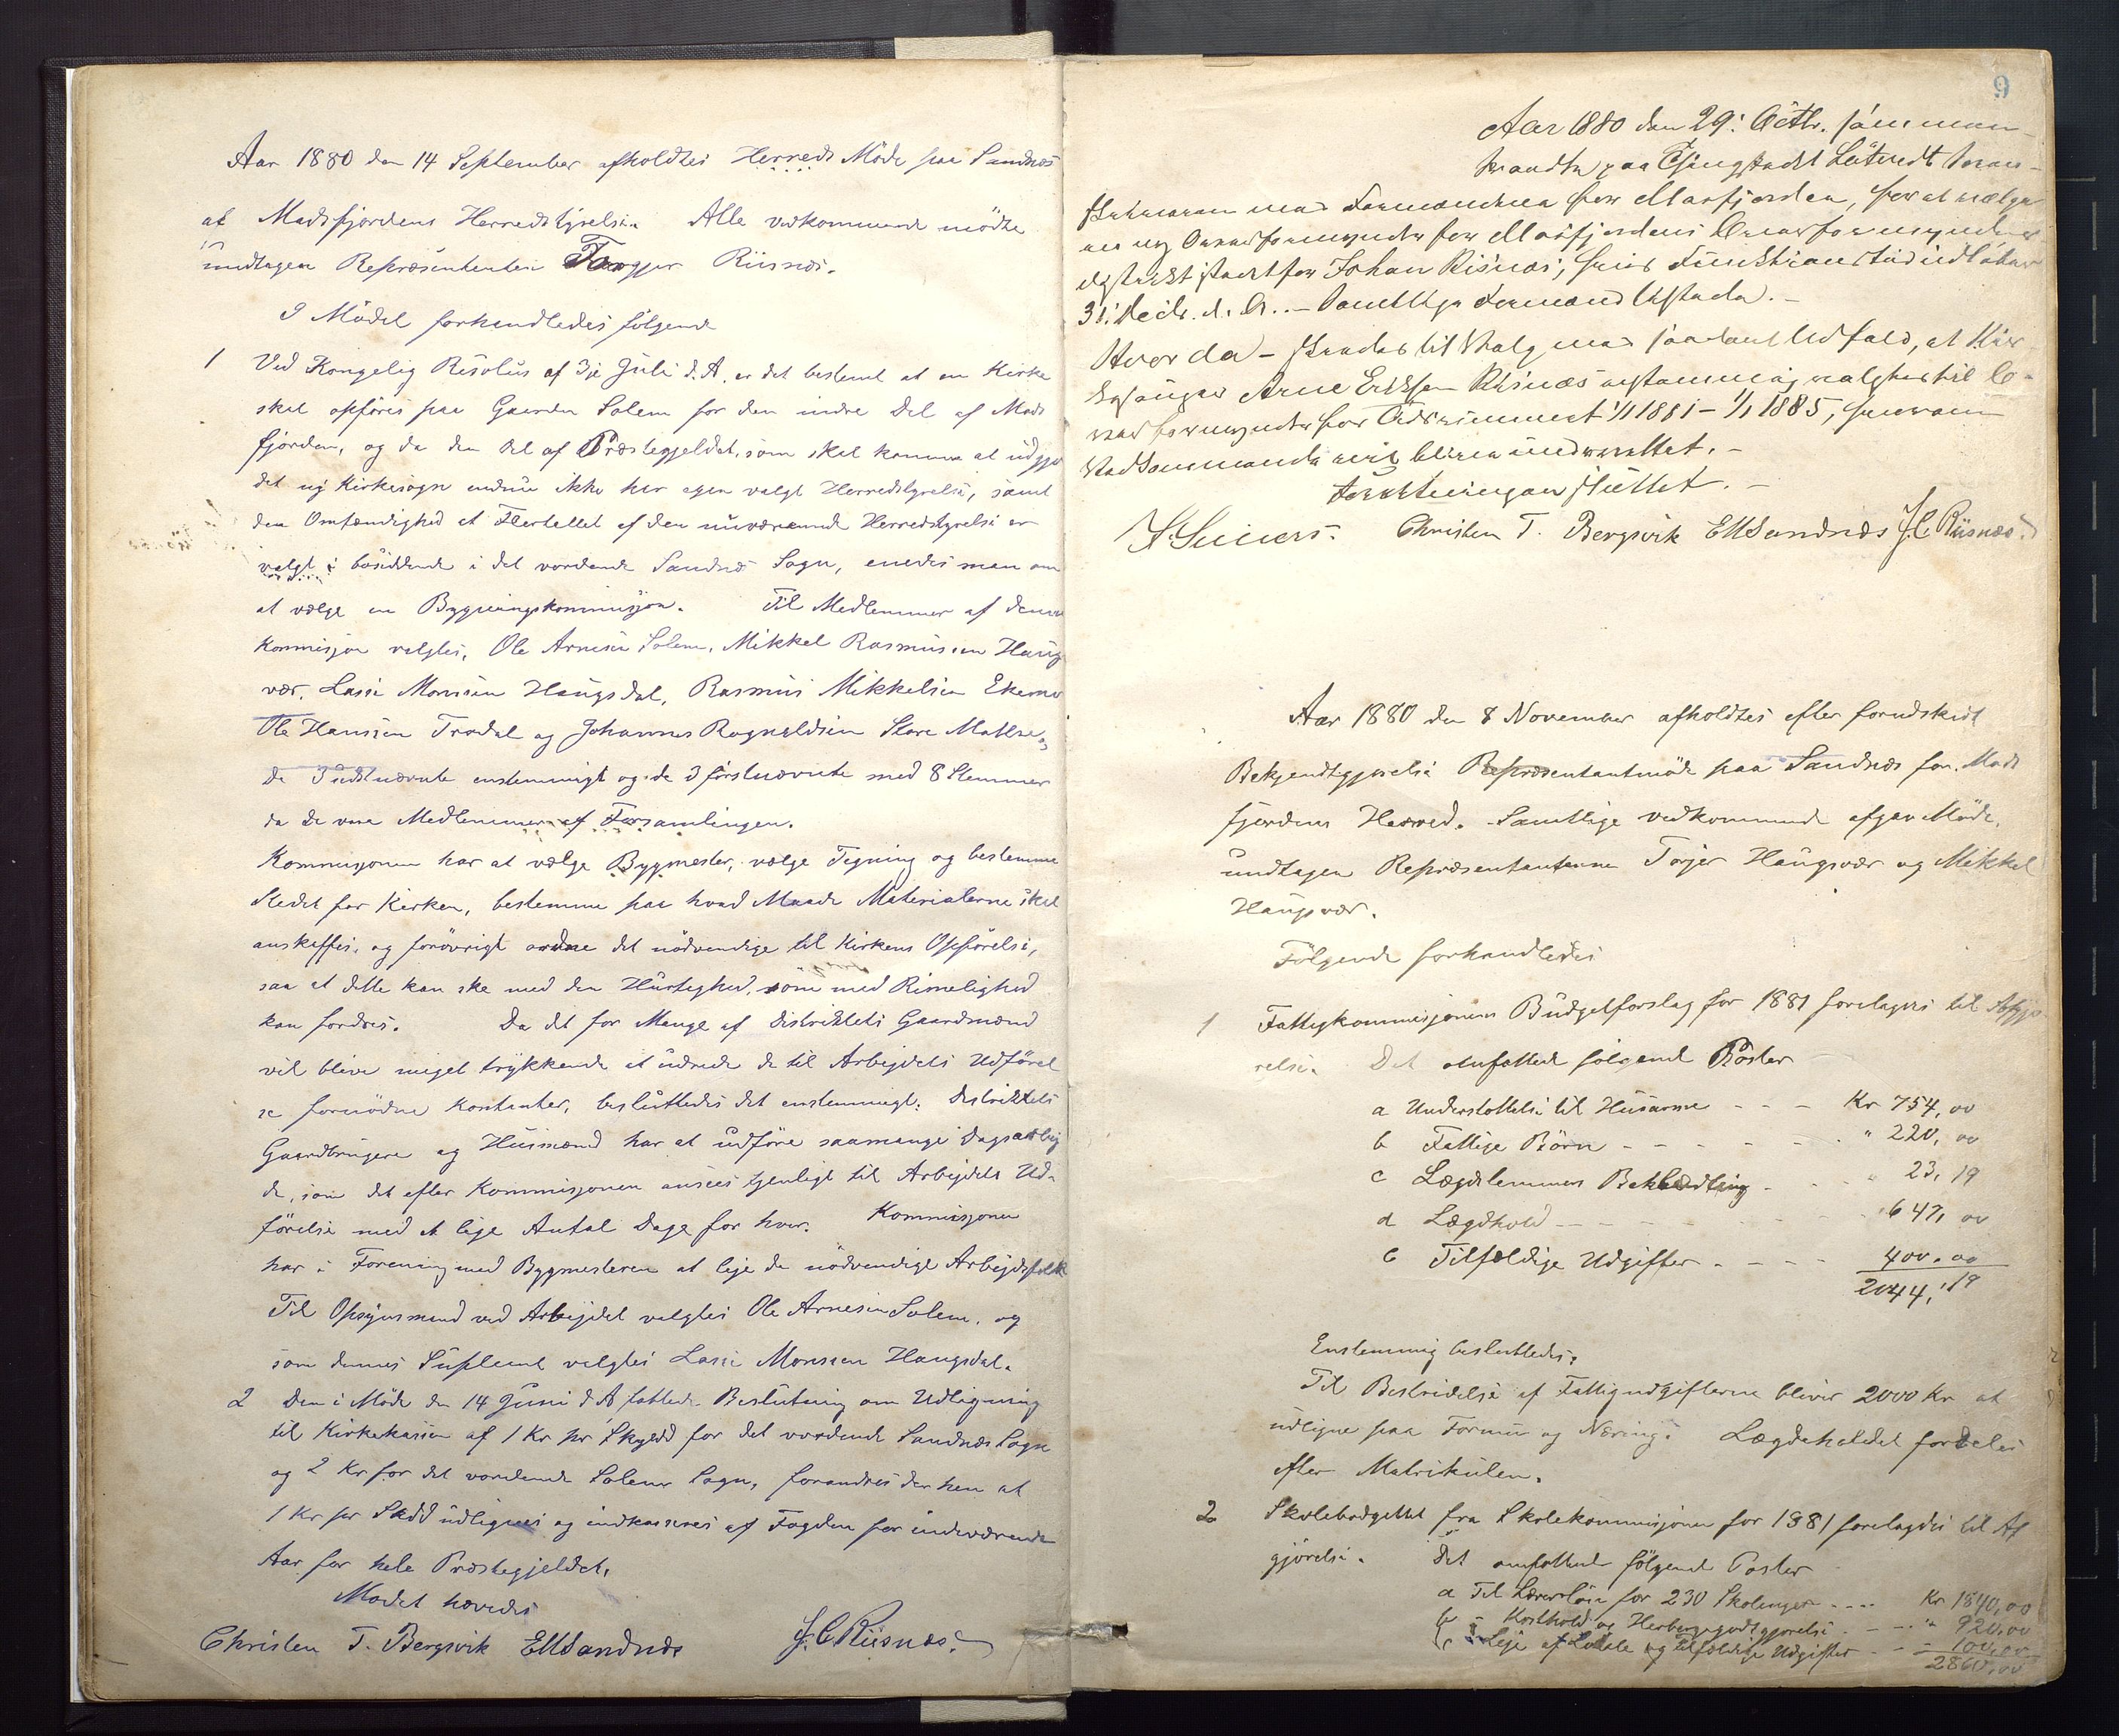 Aar 1880 den 14 September afholdtes Herreds Møde paa Sandnes
af Madsfjordens Herredstyrelse. Alle vedkommende mödte
undtagen Repræsentanten Torgjer Riisnæs.
I Mödet forhandledes fölgende
1 Ved Kongelig Resolus af 3je Juli d. A. er det bestemt at en Kirke
skal opföres paa Gaarden Solem for den indre Del af Mads
fjorden, og da den Del af Præstegjeldet, som skal komme at udgjø
det ny Kirkesogn endnu ikke har egen valgt Herredstyrelse, samt
den Omstændighed at Flertallet af den nuværende Herredstyrelse er
valgt i bösiddende i det vordende Sandnes Sogn, enedes man om
at vælge en Bygningskommisjon. Til Medlemmer af denne
Kommisjon valgtes, Ole Arnesen Solem, Mikkel Rasmussen Haug
vær, Lasse Monsen Haugsdal, Rasmus Mikkelsen
Ole Hansen Trodal og Johannes Rognaldsen Skare Matre,
De 3 sidstnævnte enstemmigt og de 3 förstnævnte med 8 Stemmer
da de vare Medlemmer af Forsamlingen.
Kommisjonen har at vælge Bygmester, vælge Tegning og bestemme
Stedet for Kirken, bestemme paa hvad Maade Materialerne skal
anskaffes, og forövrigt ordne det nödvendige til Kirkens Opförelse,
saa at dette kan ske med den Hurtighed, som med Rimelighed
kan fordres. Da det for Mange af Distriktets Gaardmænd
vil blive meget trykkende at udrede de til Arbejdets Udförel
se fornödne Kontanter, besluttedes det enstemmigt: Distriktets
Gaardbrugere og Husmænd har at udföre saamange Dagsarbej
de, som det efter Kommisjonen ansees tjenligt til Arbejdets Ud-
förelse med et lige Antal Dage for hver. Kommisjonen
har i Forening med Bygmesteren at leje de nödvendige Arbejdsfolk
Til Opsynsmand ved Arbejdet valgtes Ole Arnesen Solem, og
som dennes Suplent valgtes Lasse Monsen Haugsdal.
2 Den i Möde den 14 Juni d A fattede Beslutning om Udligning
til Kirkekassen af 1 Kr pr Skyldd for det vordende Sandnes Sogn
og 2 Kr for det vordende Solems Sogn, forandres derhen at
1 Kr pr Skdd udlignes og indkasseres af Fogden for indeværende
Aar for hele Præstegjeldet.
Mödet hævedes
Christen T. Bergsvik EMSandnæs J. C. Riisnæs.
9
Aar 1880 den 29: Octb. sammen-
traadte paa Lensmanden
med Formændene for Masfjorden, for at vælge
en ny Overformynder for Masfjordens Overformynder
distrikt istedetfor Johan Risnæs, hvis Funktionstid udløber
31: Decb. d. A. – Samtlige Formænd tilstede. –
Hvorda – skredes til Valg med saadant Udfald, at Kir-
kesanger Arne Eriksen Risnæs enstemmig valgtes til O-
verformynder for Tidsrummet 1/1 1881 – 1/1 1885, hvorom
Vedkommende vil blive underrettet. –
Forretningen sluttet. –
Christen T. Bergsvik EMSandnæs J. C. Riisnæs.
Aar 1880 den 8 November afholdtes efter forudskeet
Bekjendtgjørelse Repræsentantmöde paa Sandnes for Mads
fjordens Herred. Samtlige vedkommende afgav Möde,
undtagen Repræsentanterne Torjer Haugsvær og Mikkel
Haugsvær.
Fölgende forhandledes
1 Fattigkommisjonens Budgetforslag for 1881 foretages til Afgjö
relse. Det omfattede fölgende Poster
a Understöttelse til Husarme - - - Kr 754,00
b Fattige Börn - - - - - - " 220,00
c Lægdslemmers Beklædning - - - " 23,19
d Lægdhold - - - - - - - " 647,00
e Tilfældige Udgifter - - - - 400,00
2044,19
Enstemmig besluttedes:
Til Bestridelse af Fattigudgifterne bliver 2000 Kr at
udligne paa Formue og Næring. Lægdeholdet fordeles
efter Matrikulen.
2 Skolebudgettet fra Skolekommisjonen for 1881 foretagdes til Af
gjörelse. Det omfattede fölgende Poster
a Til Lærerløn for 230 Skoleuger .... Kr 1840,00
b - Kosthold og Herbergegodtgjørelse - - - " 920,00
c - Leje af Lokale og tilfældige Udgifter - - 100,00
2860,00